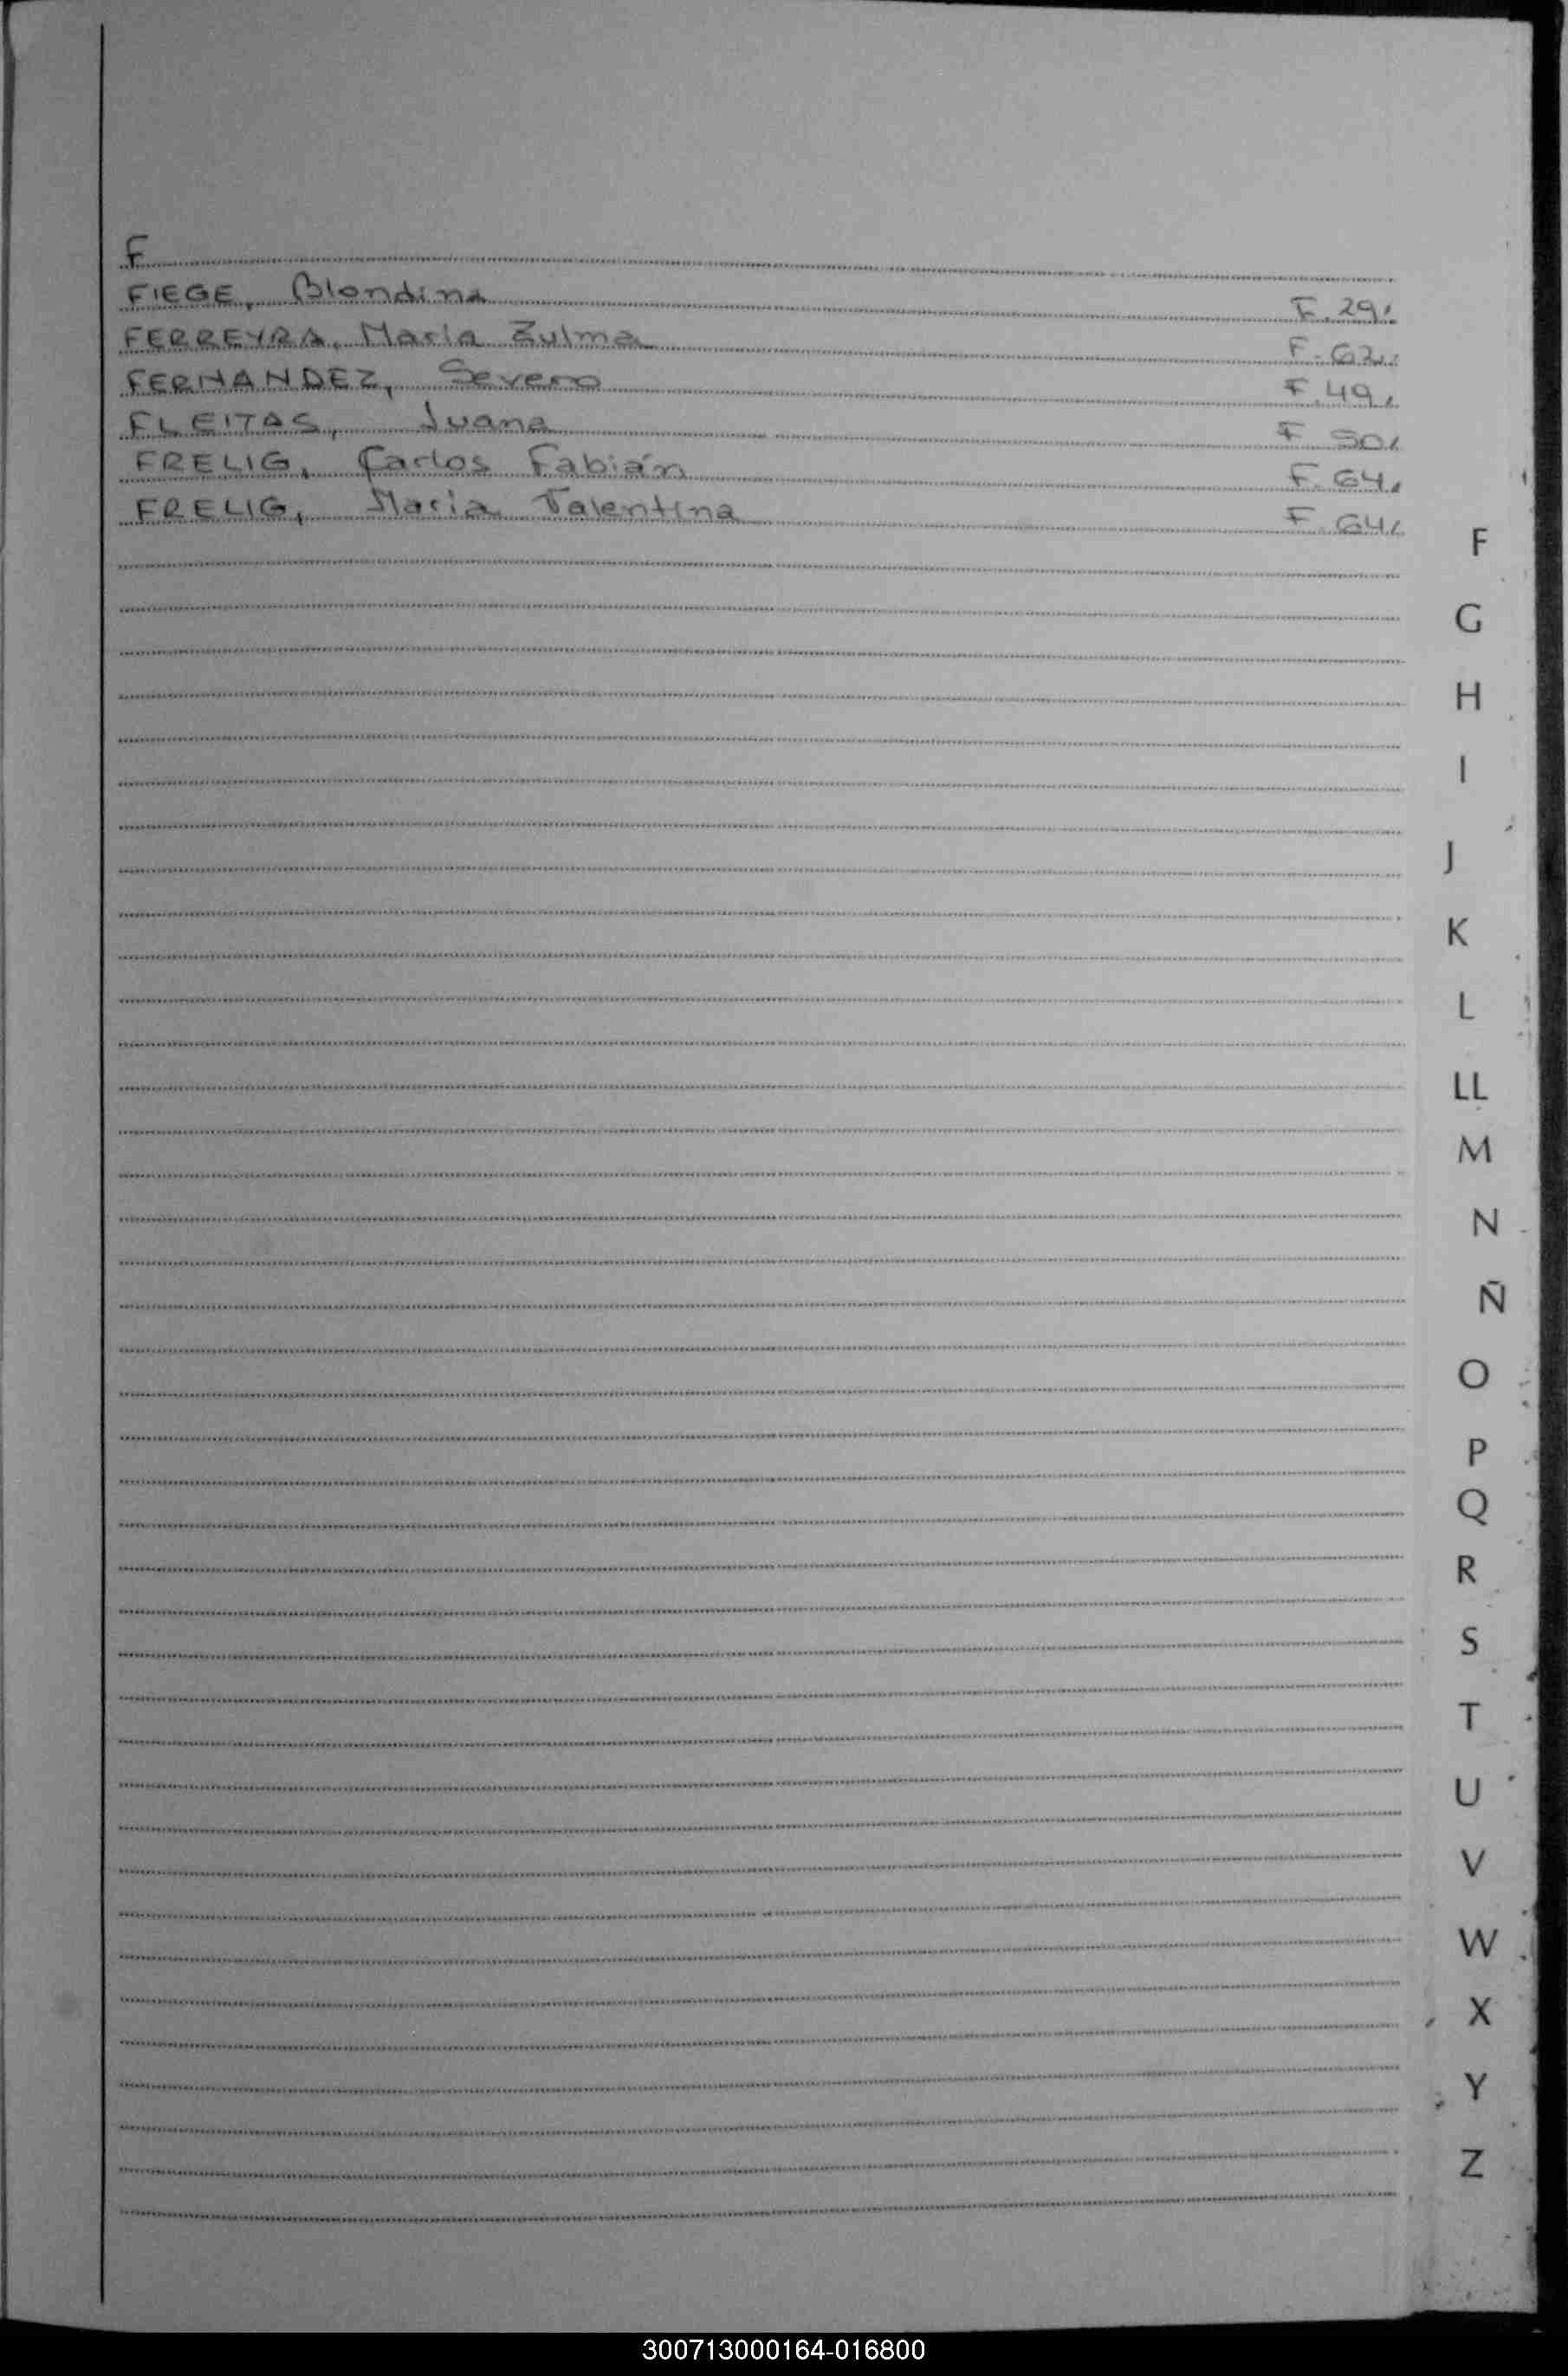 F
FIEGE, Blondina F. 29.
FERREYRA, María Zulma F. 62.
FERNANDEZ, Severo F. 49.
FLEITAS, Juana F 50.
FRELIG, Carlos Fabián F. 64.
FRELIG, María Valentina F. 64.
F
G
H
I
J
K
L
LL
M
N
Ñ
O
P
Q
R
S
T
U
V
W
X
Y
Z
300713000164-016800